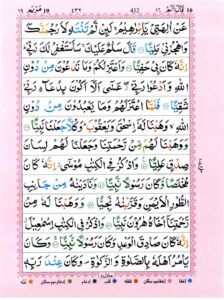 قال الم ١٦ ٤٣٢ مريم ١٩
عَنْ اٰلِهَتِىْ يٰۤاِبْرٰهِيْمُ ۚ لَئِنْ لَّمْ تَنْتَهِ لَاَرْجُمَنَّكَ
وَاهْجُرْنِىْ مَلِيًّا قَالَ سَلٰمٌ عَلَيْكَ ۚ سَاَسْتَغْفِرُ لَكَ رَبِّىْ ؕ
اِنَّهٗ كَانَ بِىْ حَفِيًّا وَاَعْتَزِلُكُمْ وَمَا تَدْعُوْنَ مِنْ دُوْنِ
اللّٰهِ وَاَدْعُوْا رَبِّىْ ۖ عَسٰٓى اَلَّاۤ اَكُوْنَ بِدُعَآءِ رَبِّىْ
شَقِيًّا فَلَمَّا اعْتَزَلَهُمْ وَمَا يَعْبُدُوْنَ مِنْ دُوْنِ اللّٰهِ ۙ
وَهَبْنَا لَهٗۤ اِسْحٰقَ وَيَعْقُوْبَ ؕ وَكُلًّا جَعَلْنَا نَبِيًّا
وَوَهَبْنَا لَهُمْ مِّنْ رَّحْمَتِنَا وَجَعَلْنَا لَهُمْ لِسَانَ
صِدْقٍ عَلِيًّا وَاذْكُرْ فِى الْكِتٰبِ مُوْسٰٓى اِنَّهٗ كَانَ
مُخْلَصًا وَّكَانَ رَسُوْلًا نَّبِيًّا وَنَادَيْنٰهُ مِنْ جَانِبِ
الطُّوْرِ الْاَيْمَنِ وَقَرَّبْنٰهُ نَجِيًّا وَوَهَبْنَا لَهٗ مِنْ
رَّحْمَتِنَاۤ اَخَاهُ هٰرُوْنَ نَبِيًّا وَاذْكُرْ فِى الْكِتٰبِ اِسْمٰعِيْلَ
اِنَّهٗ كَانَ صَادِقَ الْوَعْدِ وَكَانَ رَسُوْلًا نَّبِيًّا وَكَانَ
يَاْمُرُ اَهْلَهٗ بِالصَّلٰوةِ وَالزَّكٰوةِ وَكَانَ عِنْدَ رَبِّهٖ